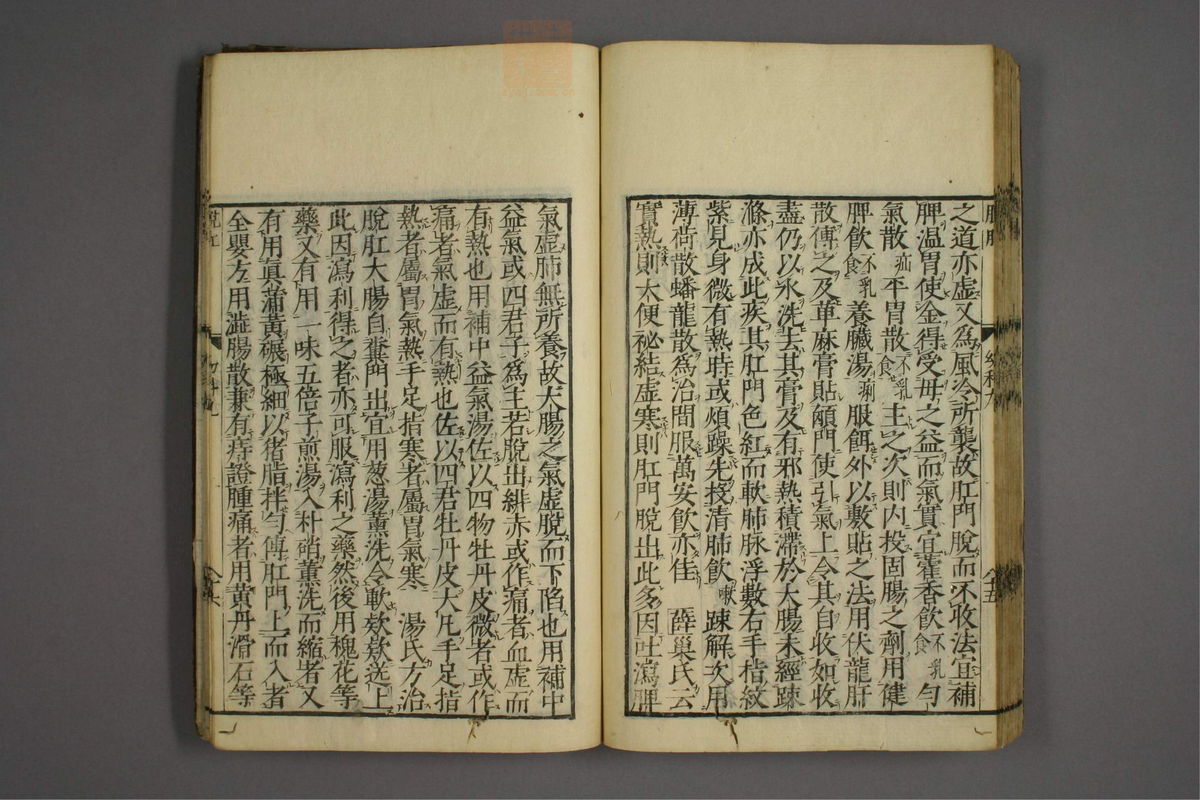 之道亦虛又為風冷所襲故肛門脫而不收法宜補
脾溫胃使金得受母之益而氣實宜藿香飲不乳食勻
氣散疝平胃散不乳食主之次則內投固腸之劑用健
脾飲不乳食養臟湯痢服餌外以敷貼之法用伏龍肝
散傅之及萆麻膏貼顖門使引氣上令其自收如收
盡仍以水洗去其膏及有邪熱積滯於大腸未經踈
滌亦成此疾其肛門色紅而軟肺脉浮數右手指紋
紫見身微有熱時或煩躁先投清肺飲嗽踈解次用
薄荷散蟠龍散為治間服萬安飲亦佳 薛巢氏云
實熱則大便祕結虛寒則肛門脫出此多因吐瀉脾
氣虛肺無所養故大腸之氣虛脫而下陷也用補中
益氣或四君子為主若脫出緋赤或作痛者血虛而
有熱也用補中益氣湯佐以四物牡丹皮微者或作
痛者氣虛而有熱也佐以四君牡丹皮大凡手足指
熱者屬胃氣熱手足指寒者屬胃氣寒 湯氏方治
脫肛大腸自糞門出宜用葱湯薰洗令軟欵欵送上
此因瀉利得之者亦可服瀉利之藥然後用槐花等
藥又有用一味五倍子煎湯入朴硝薰洗而縮者又
有用真蒲黃碾極細以猪脂拌勻傅肛門上而入者
全嬰方用澁腸散兼有痔證腫痛者用黃丹滑石等
脫肛